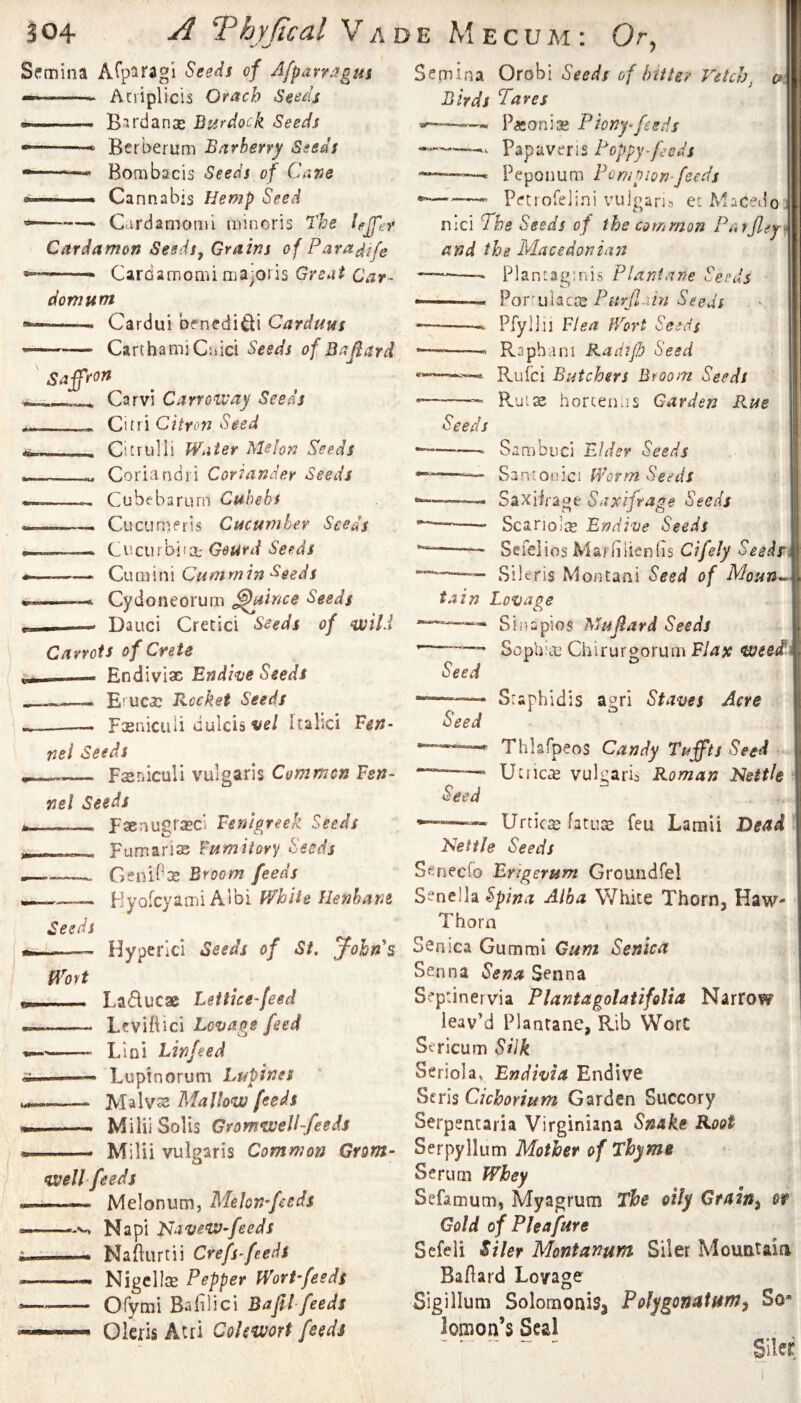 304 A Phyſical VADE MECUM: Or,
Semina Aſparagi Seeds of Aſparragus
—— Atriplicis Orach Seeds
—— Bardanæ Burdock Seeds
—— Berberum Barberry Seeds
—— Bombacis Seeds of Cane
—— Cannabis Hemp Seed
—— Cardamomi minoris The leſſer
Cardamon Seeds, Grains of Paradiſe
—— Cardamomi majoris Great Car-
domum
—— Cardui benedicti Carduus
—— Carthami Cnici Seeds of Baſtard
Saffron
—— Carvi Carroway Seeds
—— Citri Citron Seed
—— Citrulli Water Melon Seeds
—— Coriandri Coriander Seeds
—— Cubebarum Cubebs
—— Cucumeris Cucumber Seeds
—— Cucurbitæ Gourd Seeds
—— Cumini Cummin Seeds
—— Cydoneorum Quince Seeds
—— Dauci Cretici Seeds of wild
Carrots of Crete
—— Endiviæ Endive Seeds
—— Erucæ Rocket Seeds
—— Fæniculi dulcis vel Italici Fen-
nel Seeds
—— Fæniculi vulgaris Common Fen-
nel Seeds
—— Fænugræci Fenigreek Seeds
—— Fumariæ Fumitory Seeds
—— Geniſtæ Broom ſeeds
—— Hyoſcyami Albi White Henbane
Seeds
—— Hyperici Seeds of St. John's
Wort
—— Lactucæ Lettice-ſeed
—— Leviſtici Lovage ſeed
—— Lini Linſeed
—— Lupinorum Lupines
—— Malvæ Mallow ſeeds
—— Milii Solis Gromwell-ſeeds
—— Milii vulgaris Common Grom-
well ſeeds
—— Melonum, Melon-ſeeds
—— Napi Navew-ſeeds
—— Naſturtii Creſs-ſeeds
—— Nigellæ Pepper Wort-ſeeds
—— Oſymi Baſilici Baſil ſeeds
—— Oleris Atri Colewort ſeeds
Semina Orobi Seeds of bitter Vetch,
Birds Tares
—— Pæoniæ Piony-ſeeds
—— Papaveris Poppy-ſeeds
—— Peponum Pompion-ſeeds
—— Petroſelini vulgaris et Macedo
nici The Seeds of the common Parſley
and the Macedonian
—— Plantaginis Plantane Seeds
—— Portulacæ Purſlain Seeds
—— Pſyllii Flea Wort Seeds
—— Raphani Radiſh Seed
—— Ruſci Butchers Broom Seeds
—— Rutæ hortensis Garden Rue
Seeds
—— Sambuci Elder Seeds
—— Santonici Worm Seeds
—— Saxifrage Saxifrage Seeds
—— Scariolæ Endive Seeds
—— Seſelios Marſilienſis Ciſely Seeds
—— Sileris Montani Seed of Moun-
tain Lovage
—— Sinapios Muſtard Seeds
—— Sophiæ Chirurgorum Flax weed
Seed
—— Staphidis agri Staves Acre
Seed
—— Thlaſpeos Candy Tuffts Seed
—— Uticæ vulgaris Roman Nettle
Seed
—— Urticæ fatuæ ſeu Lamii Dead
Nettle Seeds
Senecſo Erigerum Groundſel
Senella Spina Alba White Thorn, Haw-
Thorn
Senica Gummi Gum Senica
Senna Sena Senna
Septinervia Plantagolatifolia Narrow
leav'd Plantane, Rib Wort
Sericum Silk
Seriola, Endivia Endive
Seris Cichorium Garden Succory
Serpentaria Virginiana Snake Root
Serpyllum Mother of Thyme
Serum Whey
Seſamum, Myagrum The oily Grain, or
Gold of Pleaſure
Seſeli Siler Montanum Siler Mountain
Baſtard Lovage
Sigillum Solomonis, Polygonatum, So-
lomon's Seal
Siler